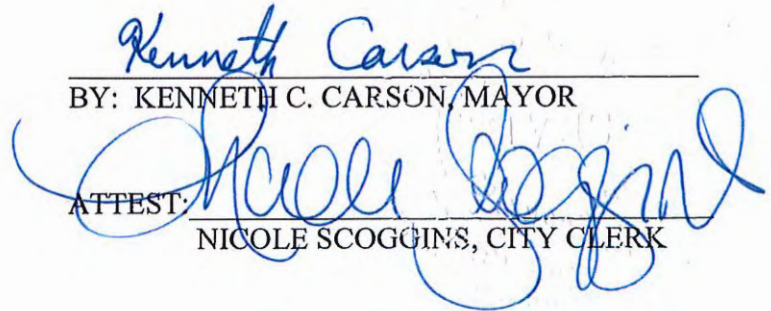 Kenneth Carson
BY: KENNETH C. CARSON, MAYOR
Nicole Scoggins
ATTEST:
NICOLE SCOGGINS, CITY CLERK